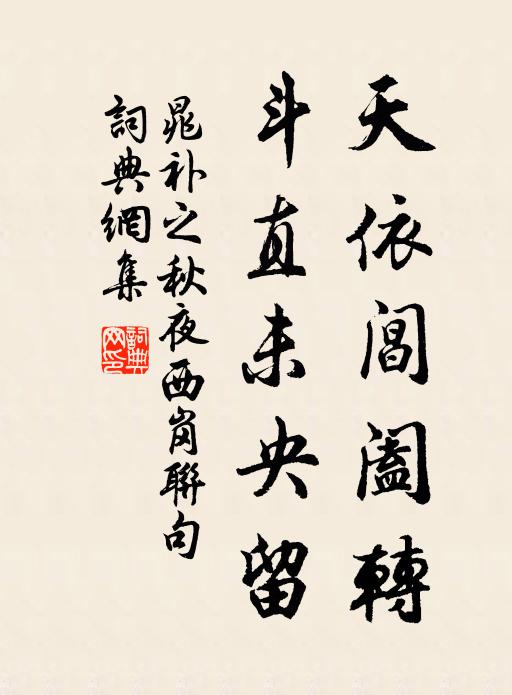 天依閶闔轉
斗直未央留
晁补之秋夜西岗聯句
詞典網集
詞典网印